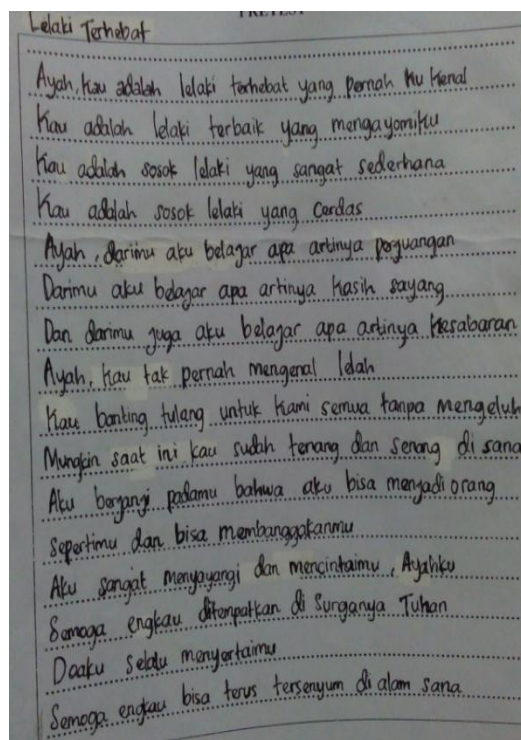 PRETEST
Lelaki Terhebat
Ayah, Kau adalah lelaki terhebat yang pernah Ku Kenal
Kau adalah lelaki terbaik yang mengayomiku
Kau adalah sosok lelaki yang sangat sederhana
Kau adalah sosok lelaki yang Cerdas
Ayah, darimu aku belajar apa artinya perjuangan
Darimu aku belajar apa artinya Kasih sayang
Dan darimu juga aku belajar apa artinya Kesabaran
Ayah, Kau tak pernah mengenal lelah
Kau banting tulang untuk Kami semua tanpa mengeluh
Mungkin saat ini kau sudah tenang dan senang di sana
Aku berjanji padamu bahwa aku bisa menjadi orang
sepertimu dan bisa membanggakanmu
Aku sangat menyayangi dan mencintaimu, Ayahku
Semoga engkau ditempatkan di Surganya Tuhan
Doaku selalu menyertaimu
Semoga engkau bisa terus tersenyum di alam sana